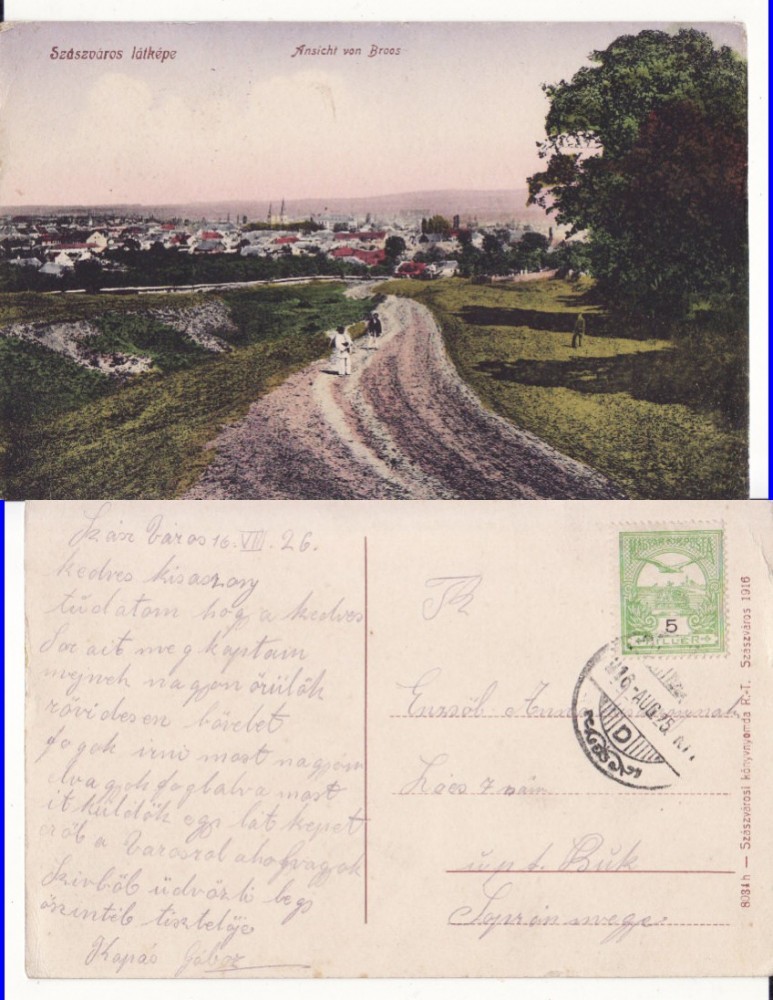 Szászváros látképe
Ansicht von Broos
Szász Város 16. VIII. 26.
kedves kisaszony
tudatom hog a kedves
Sorait meg kaptam
mejnek nagyon örülök
rövidesen bövebet
fogok irni most nagyon
elvagyok foglalva most
it küldök egy lát kepet
eröl a Varosrol ahol vagyok
Szivböl üdvözli
öszinte tisztelöje
Kapás Gábor
MAGYAR KIR. POSTA
5
FILLER
916 AUG. 25.
D
Anna
Lócs 7 szám
u.p.t. Bük
Soprán mege
8031 h — Szászvárosi könyvnyomda R.-T. Szászváros 1916